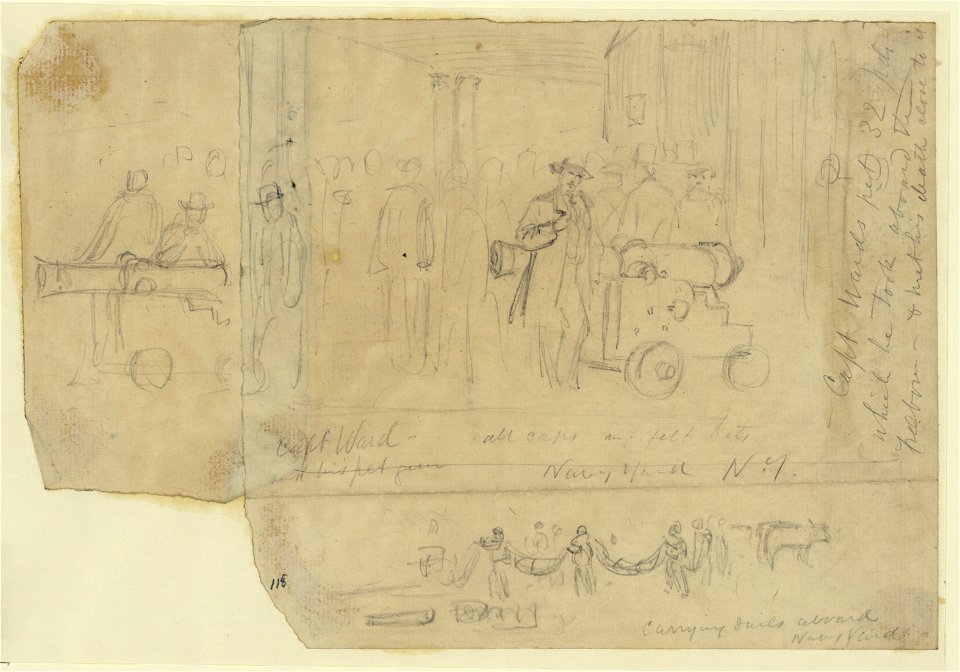 Capt Wards pet 32 pdr
which he took aboard the
freeborn - & met his death close to it
Capt Ward -
and his pet gun
all caps and felt hats
Navy Yard N.Y.
118
Carrying sails aboard
Navy Yard